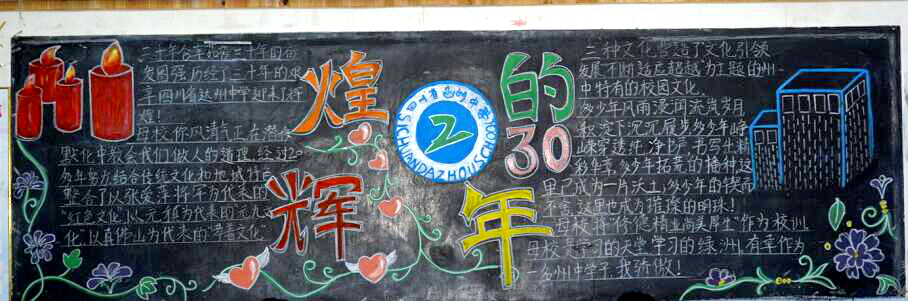 三十年含辛茹苦三十年的奋
发图强历经了三十年的艰
辛四川省达州中学迎来了辉
煌!
母校你风清气正在潜移
默化中教会我们做人的道理.经过20
多年努力结合传统文化和地域特色
整合了以张爱萍将军为代表的
"红色文化",以元稹为代表的"元九文
化",以真佛山为代表的"孝善文化"
煌
辉
四川省达州中学
SICHUANDAZHOUSCHOOL
2
的
30
年
三种文化营造了文化引领
发展不断超应超越"为主题的州
中特有的校园文化.
多少年风雨浸润流流岁月
积淀下沉沉履步多少年峥
嵘穿透纯净的书写斗粉
粉生亭,多少年拓荒的播种这
里已成为一片沃土,多少年的锲而
不舍这里也成为璀璨的明珠!
母校将"修德精业尚美厚生"作为校训
母校是学习的天堂学习的绿洲,有幸作为
一名州中学子,我骄傲!